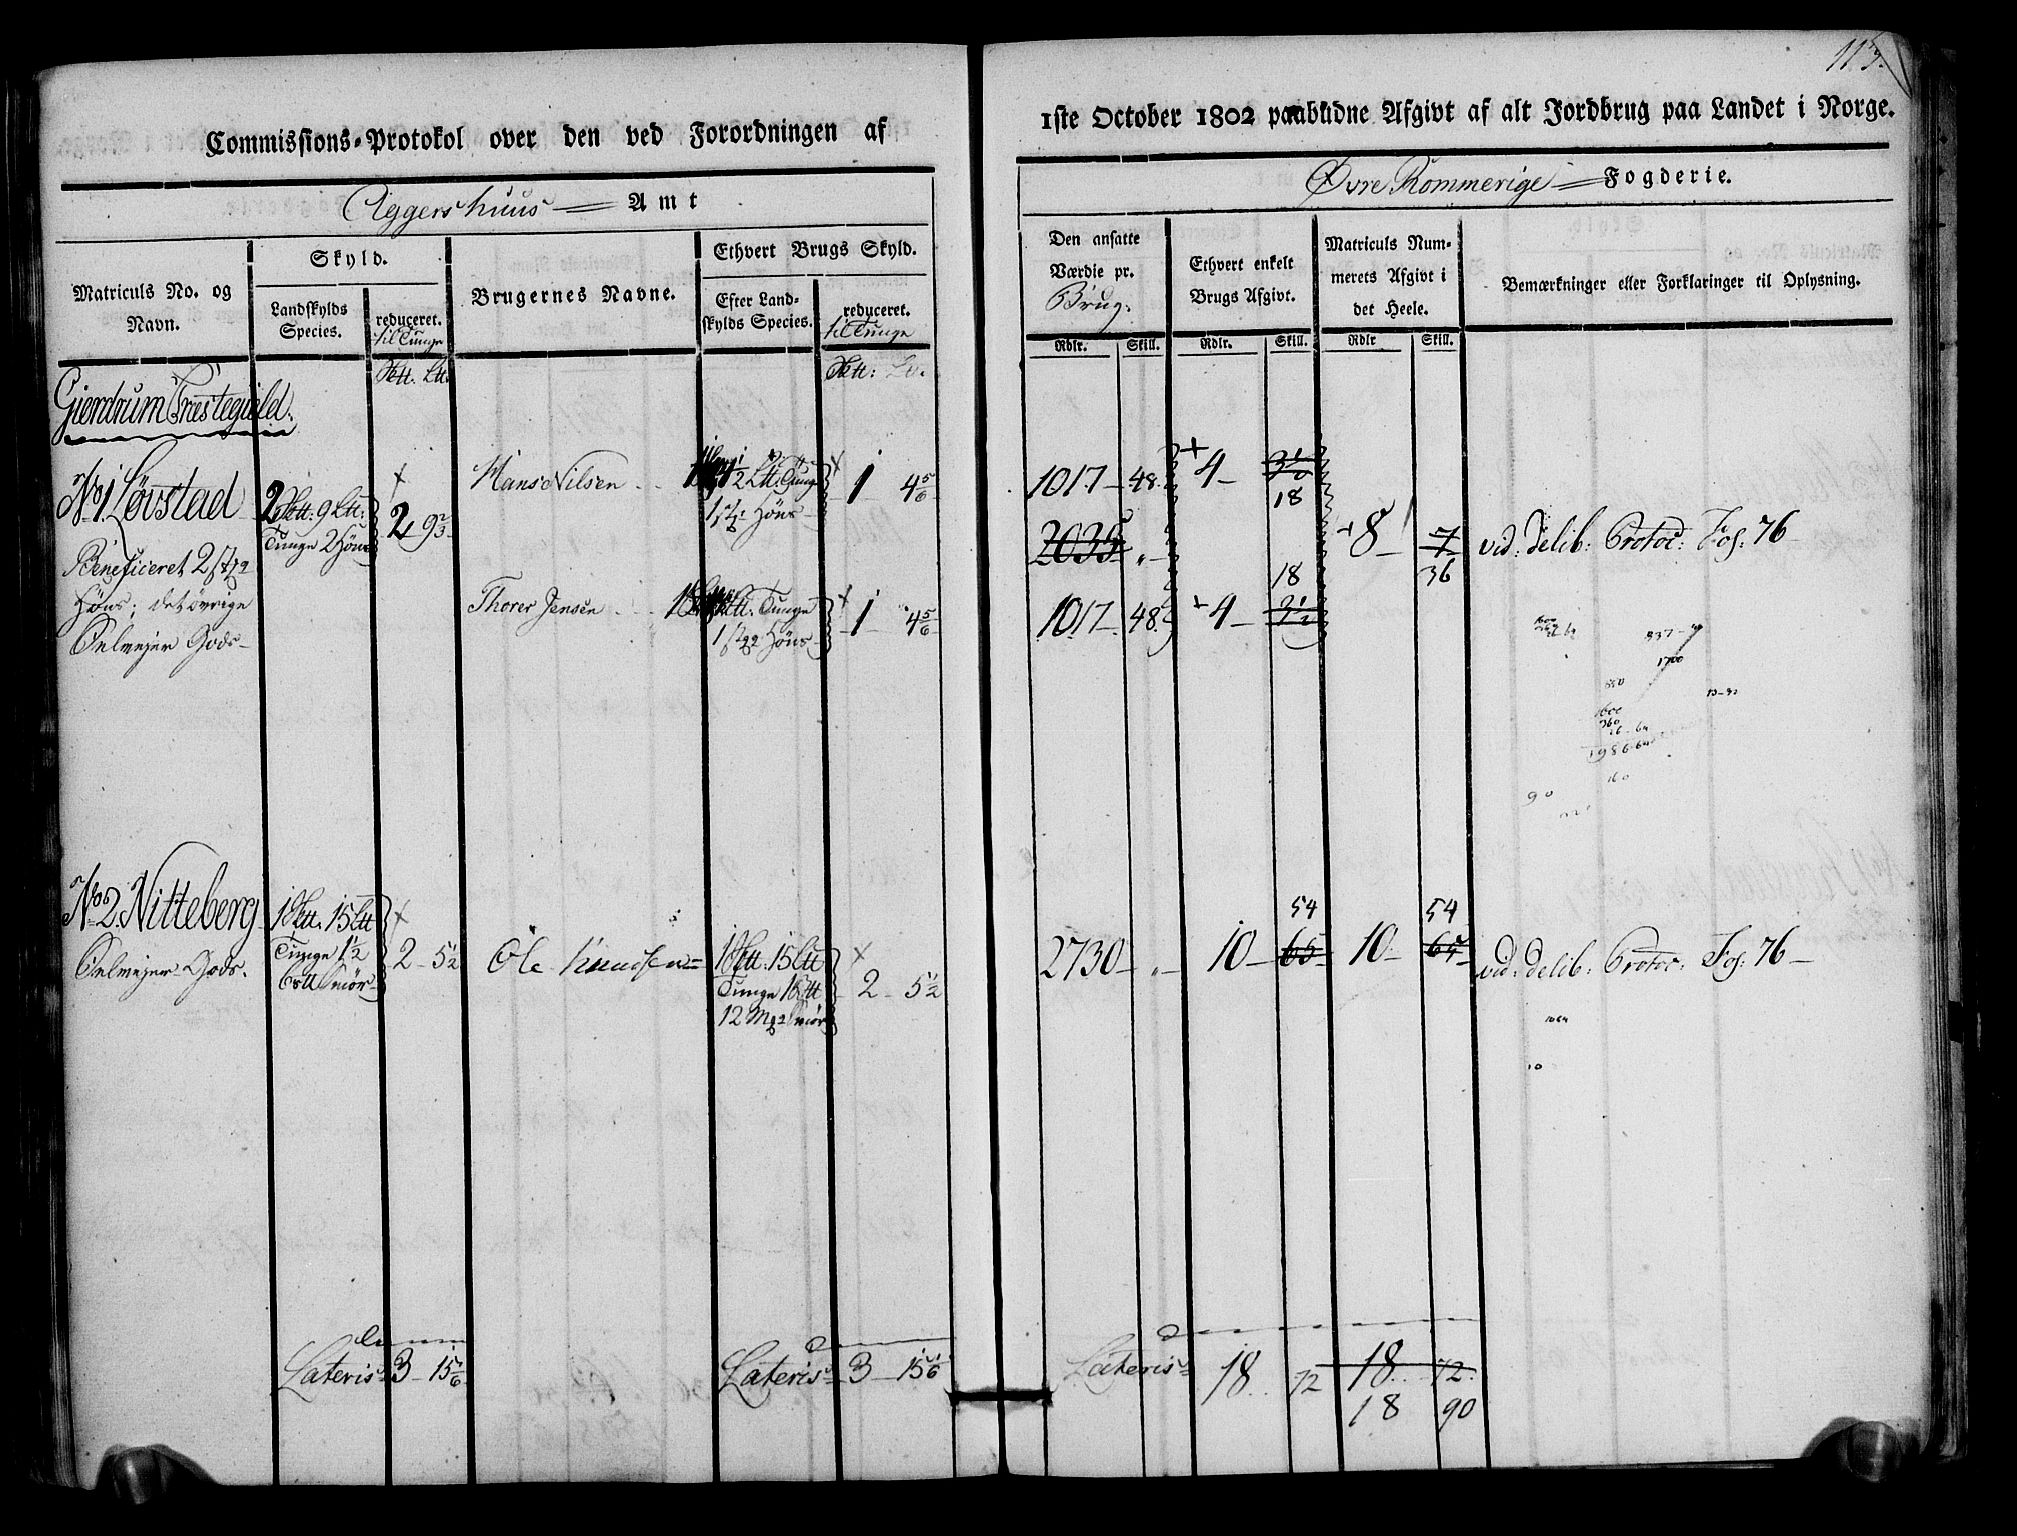 113.
Commissions-Protokol over den ved Forordningen af
1ste October 1802 paabudne Afgivt af alt Jordbrug paa Landet i Norge.
Aggershuus Amt
Øvre Rommerige Fogderie.
Matriculs No. og Navn.
Skyld.
Landskylds Species.
reduceret. til Tunge
Brugernes Navne.
Ethvert Brugs Skyld.
Efter Landskylds Species.
reduceret. til Tunge
Den ansatte Værdie pr. Brug.
Ethvert enkelt Brugs Afgivt.
Matriculs Nummerets Afgivt i det Heele.
Bemærkninger eller Forklaringer til Oplysning.
Rdlr. Skill. Rdlr. Skill. Rdlr Skill.
Giendrum Præstegield.
No 1. Løvstad
Beneficeret 2
Høns; det øvrige
Gods
2 9 Ltt:
Tunge 2 Høns
2 9 2/3
Hans Nilsen
1/2 Ltt. Tunge
1 Høns
1 4 5/6
1017 48.
4 3 1/2
18
2035
8 7
36
vid: Delib: Protoc: Fol: 76
Thorer Jensen
Tunge
1 Høns
1 4 5/6
1017 48.
18
4 3 1/2
No 2. Nitteberg
Gods.
1 15 Ltt
Tunge 1 1/2
Smør
2 5 1/2
Ole Knudsen
1 15 Ltt
Tunge
12 Smør
2 5 1/2
2730
54
10 65
54
10 65
vid: Delib: Protoc: Fol: 76
Lateris 3 15 1/6
Lateris 3 15 1/6
Lateris 18 72 18 72
18 90